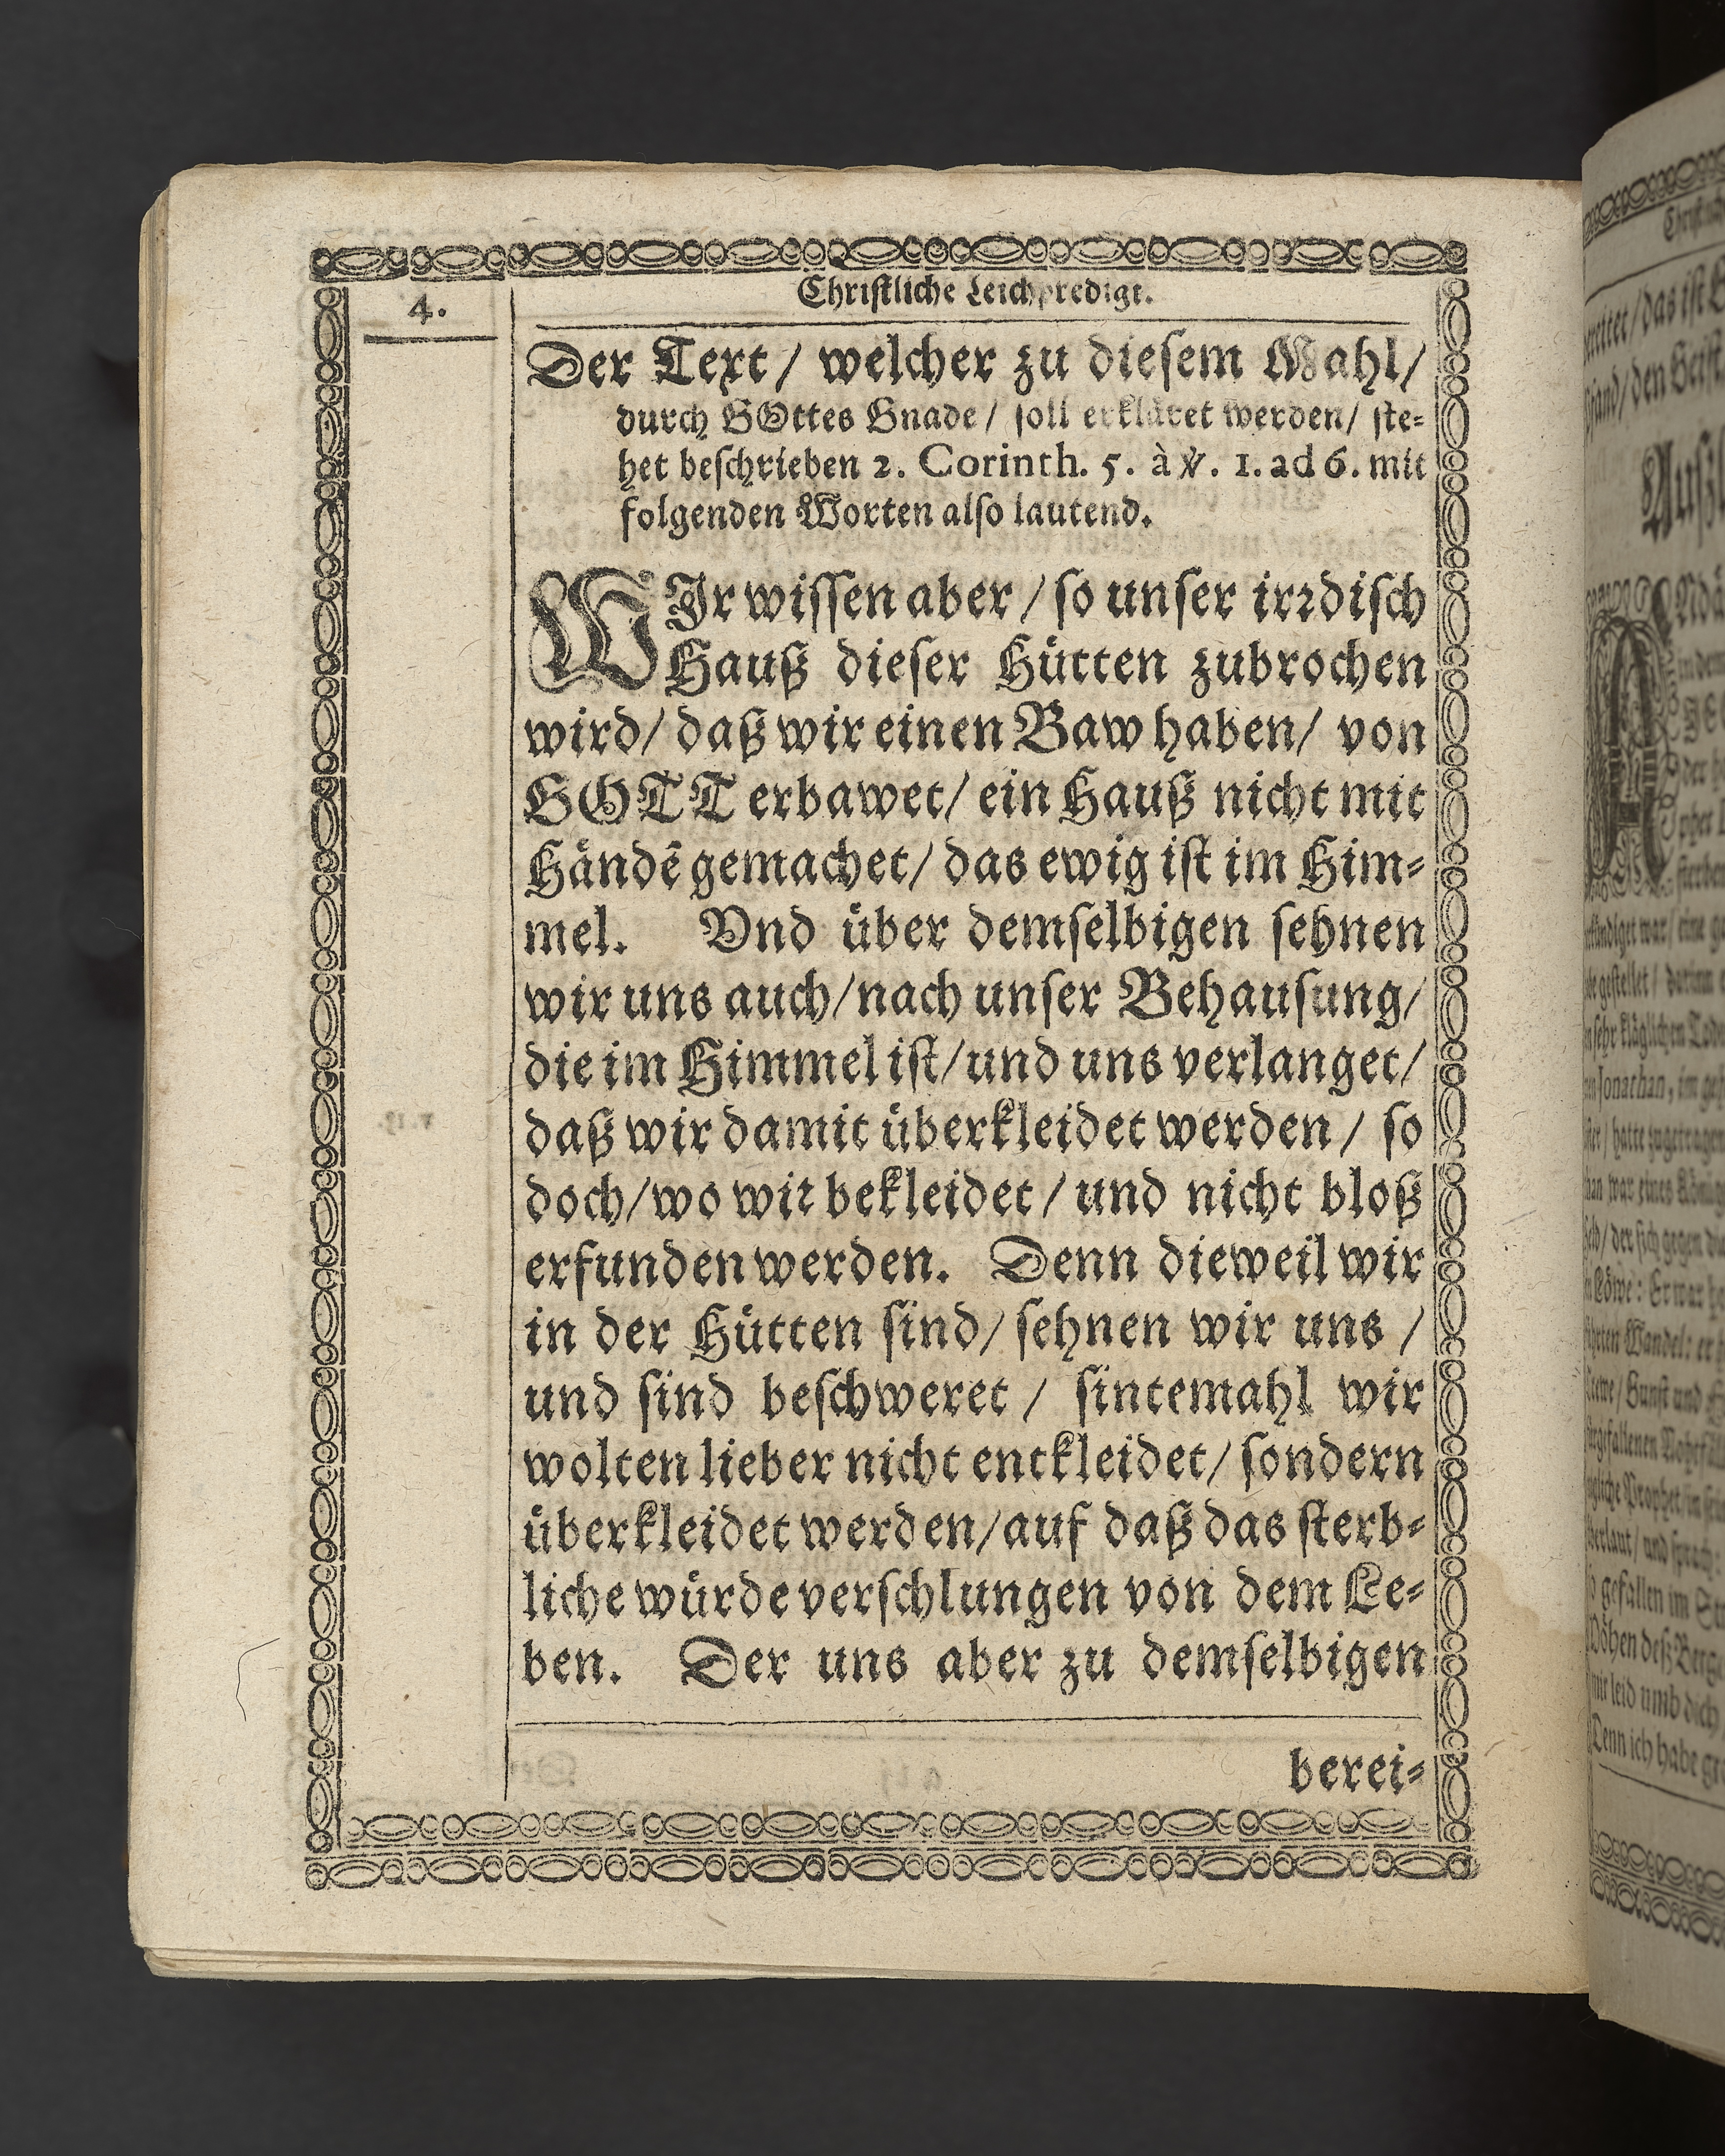 4.
Christliche Leichpredigt.
Der Text / welcher zu diesem Mahl /
durch GOttes Gnade / soll erkläret werden / ste-
het beschrieben 2. Corinth. 5. à ℣. 1. ad 6. mit
folgenden Worten also lautend.
WIr wissen aber / so unser irrdisch
Hauß dieser Hütten zubrochen
wird / daß wir einen Baw haben / von
GOTT erbawet / ein Hauß nicht mit
Händẽ gemachet / das ewig ist im Him-
mel. Vnd über demselbigen sehnen
wir uns auch / nach unser Behausung /
die im Himmel ist / und uns verlanget /
daß wir damit überkleidet werden / so
doch / wo wir bekleidet / und nicht bloß
erfunden werden. Denn dieweil wir
in der Hütten sind / sehnen wir uns /
und sind beschweret / sintemahl wir
wolten lieber nicht entkleidet / sondern
überkleidet werden / auf daß das sterb-
liche würde verschlungen von dem Le-
ben. Der uns aber zu demselbigen
berei-